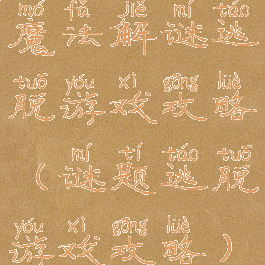 mó fǎ jiě mí táo
魔法解谜逃
tuō yóu xì gōng lüè
脱游戏攻略
mí tí táo tuō
(谜题逃脱
yóu xì gōng lüè
游戏攻略)